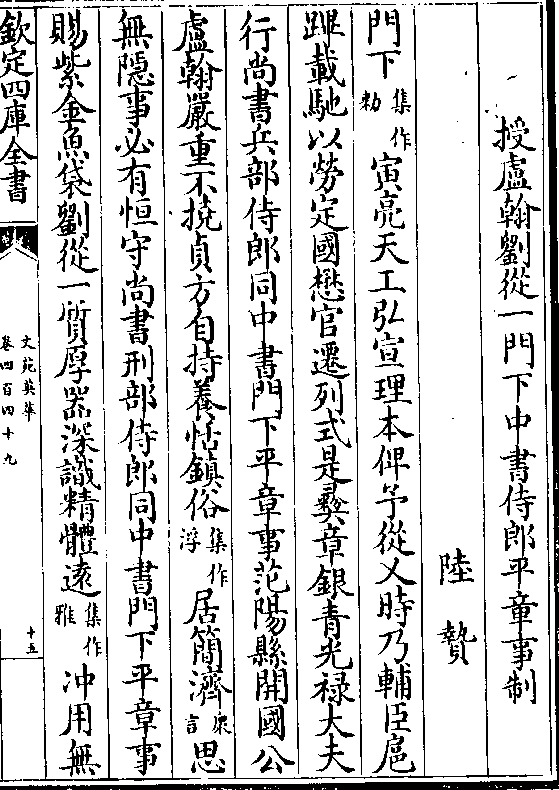 授盧翰劉從一門下中書侍郎平章事制
陸贄
門下集作勑寅亮天工弘宣理本俾予從乂時乃輔臣扈
蹕載馳以勞定國懋官遷列式是彝章銀青光祿大夫
行尚書兵部侍郎同中書門下平章事范陽縣開國公
盧翰嚴重不撓貞方自持養恬鎮俗集作浮居簡濟衆言思
無隱事必有恒守尚書刑部侍郎同中書門下平章事
賜紫金魚袋劉從一質厚器深識精體遠集作雅冲用無
欽定四庫全書
文苑英華
卷四百四十九
十五